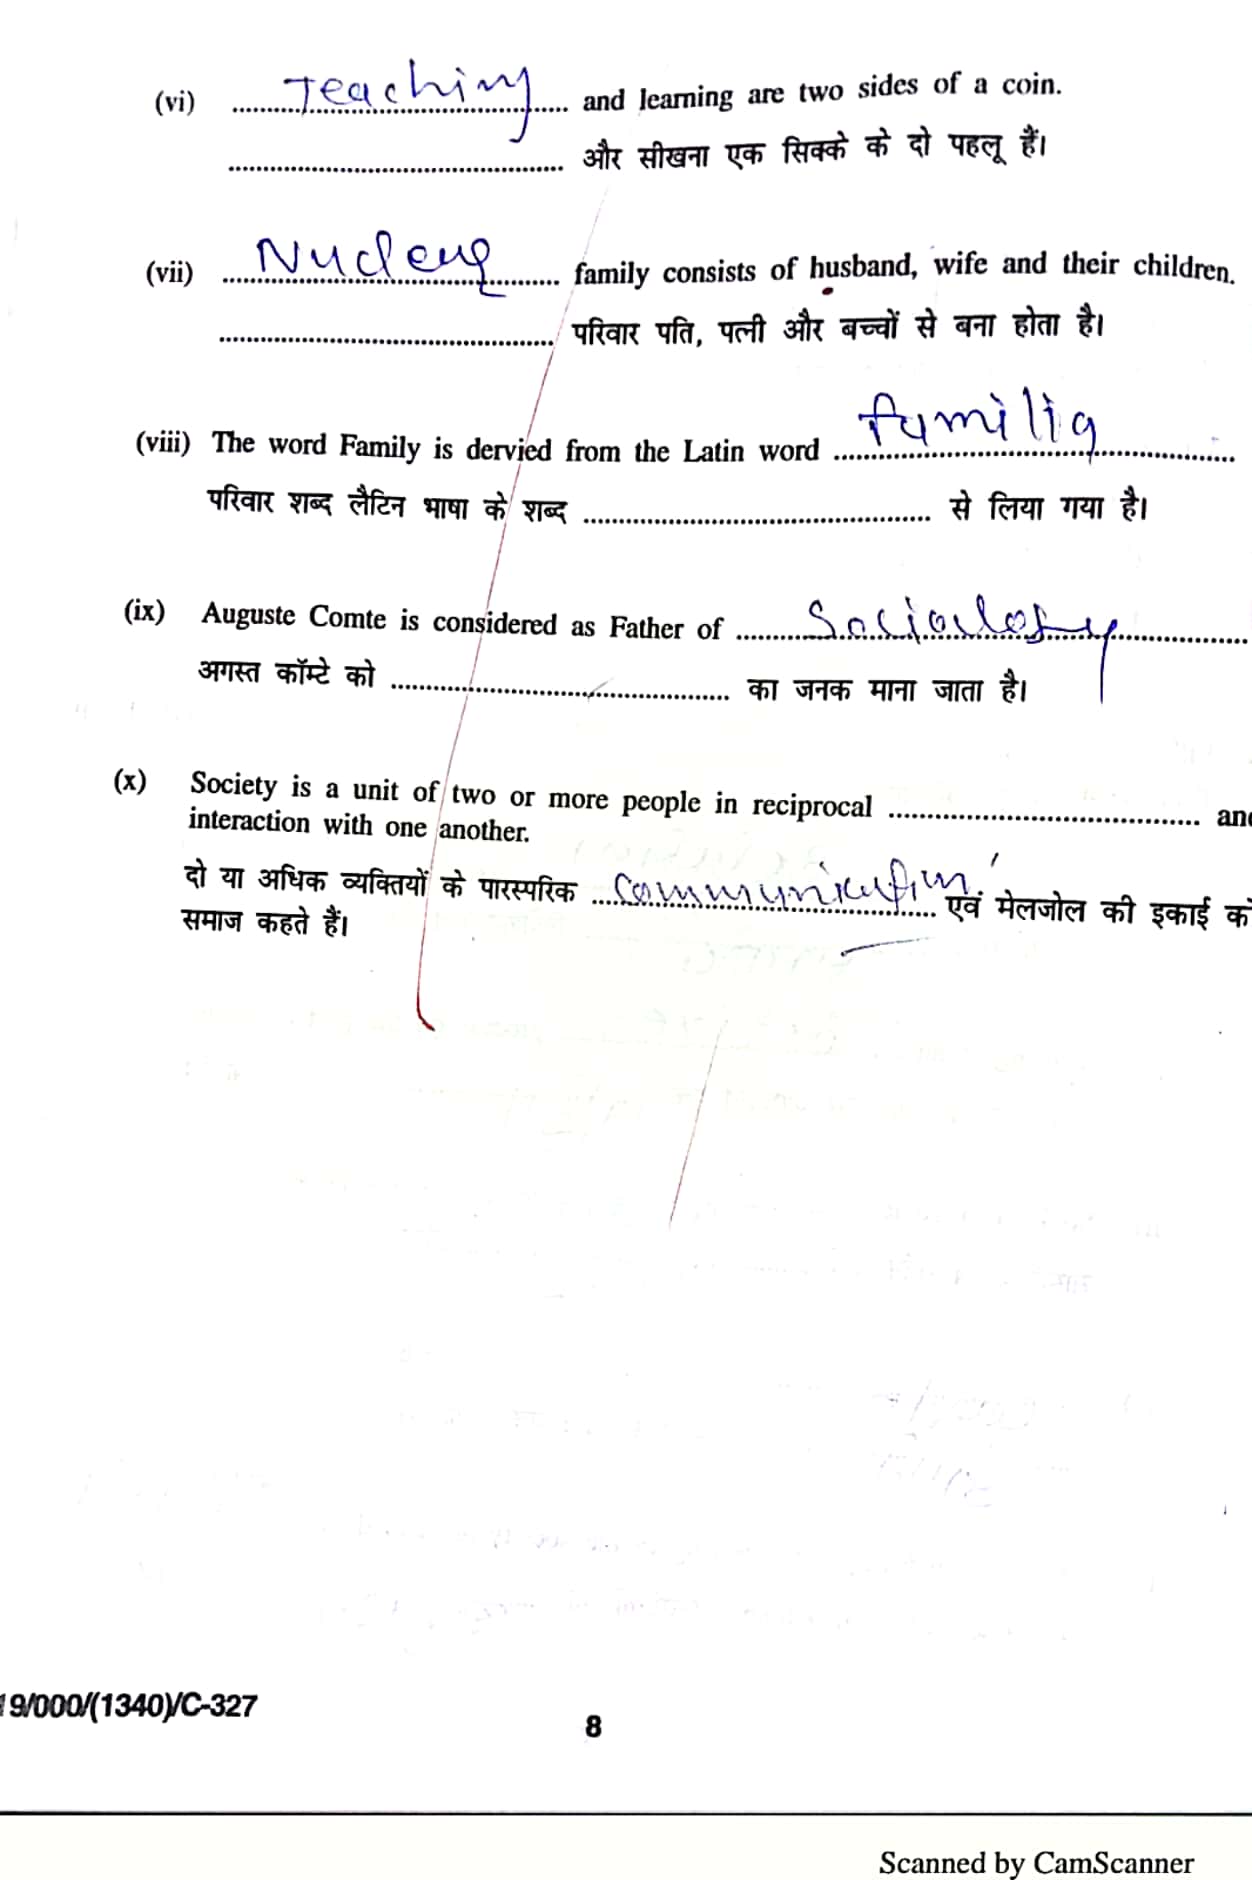 (vi) Teaching and learning are two sides of a coin.
.................................................. और सीखना एक सिक्के के दो पहलू हैं।
(vii) Nuclear family consists of husband, wife and their children.
.................................................. परिवार पति, पत्नी और बच्चों से बना होता है।
(viii) The word Family is dervied from the Latin word familia
परिवार शब्द लैटिन भाषा के शब्द .................................................. से लिया गया है।
(ix) Auguste Comte is considered as Father of Socioulogy
अगस्त कॉम्टे को .................................................. का जनक माना जाता है।
(x) Society is a unit of two or more people in reciprocal .............................................. and
interaction with one another.
दो या अधिक व्यक्तियों के पारस्परिक Communication एवं मेलजोल की इकाई को
समाज कहते हैं।
19/000/(1340)/C-327
8
Scanned by CamScanner